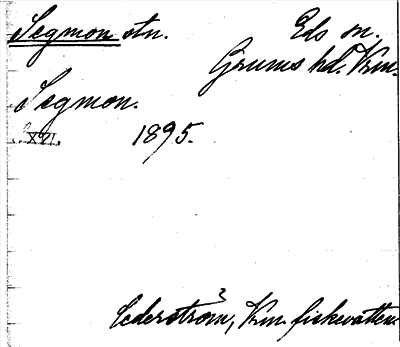 Segmon stn. Eds sn.
Grums hd. Vrm.
Segmon.
1895.
Cederström, Vrm. fiskevatten